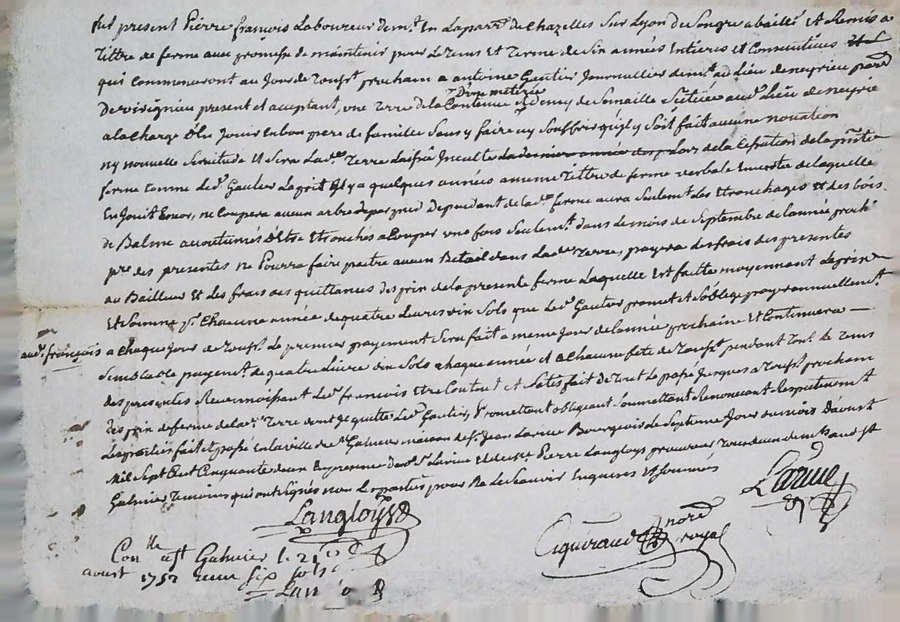 fut present Pierre françois Laboureur demt. En Laparre. de Chazelles Sur Lyon de Songre abaillé Et Remis a
Tiltre de ferme aux promesse de maintenir pour Le Tems Et Terme de Six années Entieres et Consecutives
qui Commenceront au Jour de Toust. prochain a antoine Gautier demt. au Lieu de neyrieu parre.
De present et acceptant, une Terre dela Contenue d'une meterée Et Demy de Semaille Sittüée audt. Lieu de neyrie
ala charge d'En Jouir En bon pere de famille Sans y faire ny Souffrir quil y Soit fait aucune novation
ny nouvelle Servitude Et Sera Lade. Terre Laissée Inculte Lors de la Expiration de la pnte.
ferme Comme Led. Gautier La prit Il y a quelques années a meme Tiltre de ferme verbale de laquelle
En Jouit Encor, ne Coupera aucun arbre par pied Dependant de lade. ferme aura Seulemt. Les Etronchages Et des bois
de Balme acoutumés d'Etre Etronchés a Couper une fois Seulemt. dans Le mois de Septembre de Lannée proch.
des presentes ne Pourra faire paitre aucun Betail dans Lade. Terre, payera Les frais des presentes
au Bailleur Et Les frais des quittances des prix de la presente ferme Laquelle Est faitte moyennant Le prix
Et Somme pr. Chacune année de quatre Livres dix Sols que Led. Gautier promet Et Soblige payer annuellemt.
aud. françois a chaque Jour de Toust. Le premier payement Sera fait a meme Jour de Lannée prochaine Et Continuera
Semblable payemt. de quatre Livre dix Sols a chaque année et a Chacune fete de Toust. pendant Tout Le Tems
des presentes Led. francois Etre Content Et Satisfait de Tout Le passé Jusques a Toust. prochain
des prix de ferme de lade. Terre dont Il quitte Led. Gautier, Promettant obligeant Soumettant Renonceant Respectivement
Les parties fait Et passé En la ville de St Galmier maison de Sr. Jean Larive Bourgeois Le Septieme Jour du mois D'aoust
Mil Sept Cent Cinquante deux En presence dud. Sr. Larive Et de Sr. Pierre Langloys
Galmier Temoins qui ont Signés non Les parties pour ne Le Scavoir Enquises Et Sommées
Larive
Langloys
nore.
royal
Conlle. a St Galmier Le 21
aoust 1752 Receu Six Sols